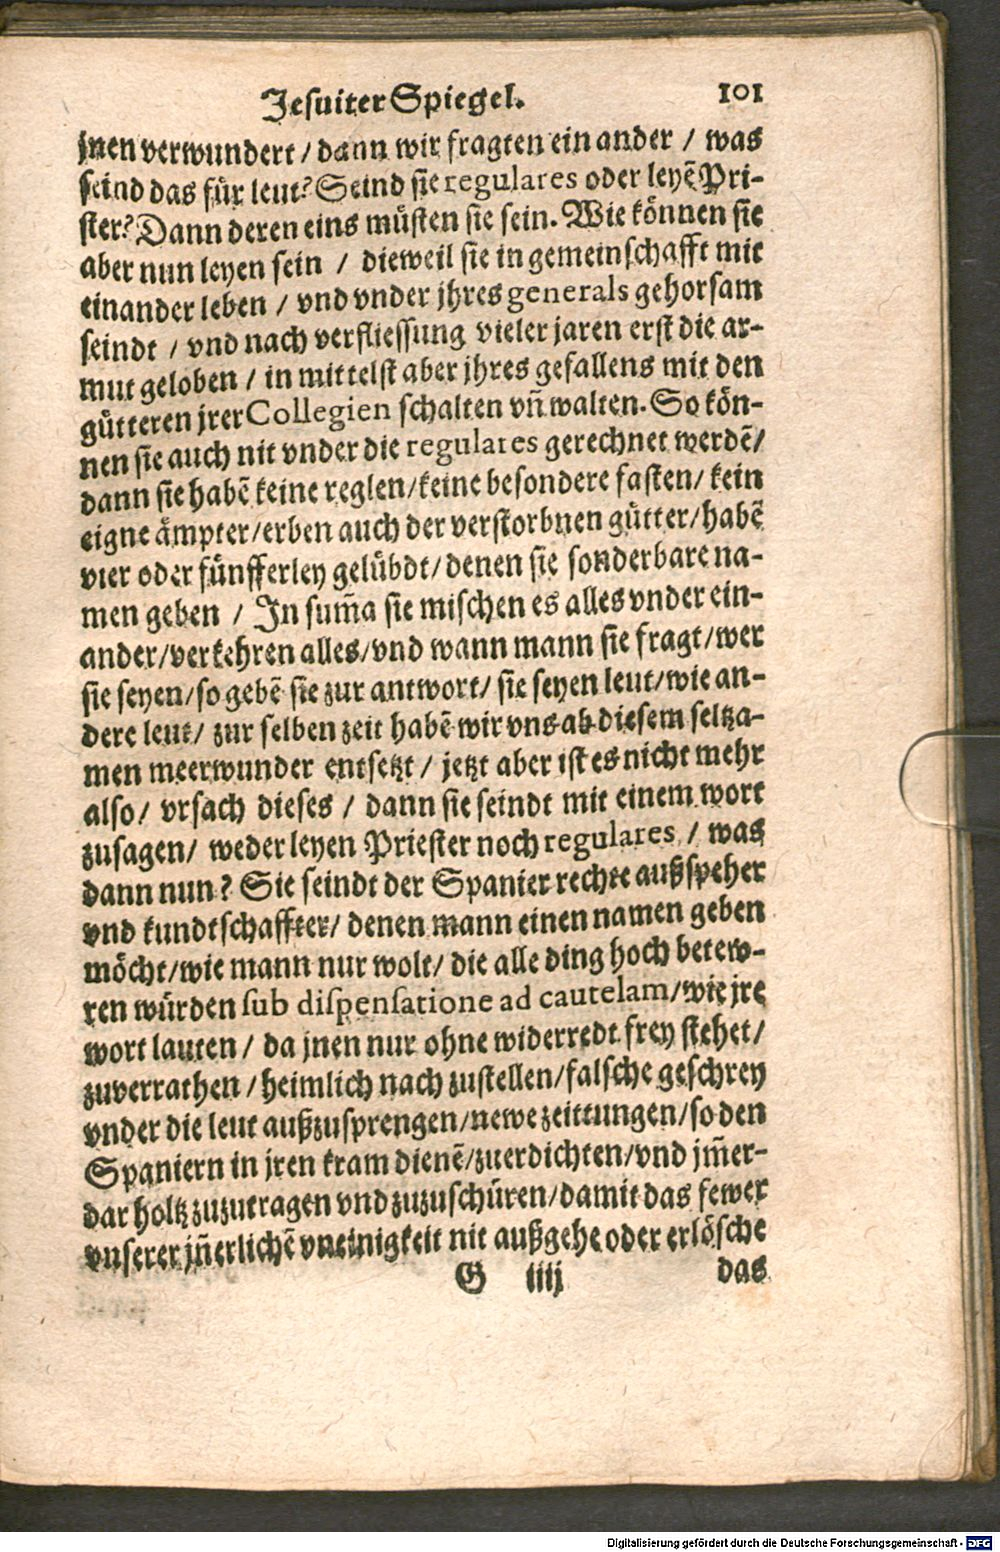 Jesuiter Spiegel. 101
jnen verwundert / dann wir fragten ein ander / was
seind das für leut? Seind sie regulares oder leyẽ Pri-
ster? Dann deren eins müsten sie sein. Wie können sie
aber nun leyen sein / dieweil sie in gemeinschafft mit
einander leben / vnd vnder jhres generals gehorsam
seindt / vnd nach verfliessung vieler jaren erst die ar-
mut geloben / in mittelst aber jhres gefallens mit den
gütteren jrer Collegien schalten vñ walten. So kön-
nen sie auch nit vnder die regulares gerechnet werdẽ/
dann sie habẽ keine reglen/keine besondere fasten/kein
eigne ämpter/erben auch der verstorbnen gütter/habẽ
vier oder fünfferley gelübdt/denen sie sonderbare na-
men geben / In sum̃a sie mischen es alles vnder ein-
ander/verkehren alles/vnd wann mann sie fragt/wer
sie seyen/so gebẽ sie zur antwort/sie seyen leut/wie an-
dere leut/ zur selben zeit habẽ wir vns ab diesem seltza-
men meerwunder entsetzt / jetzt aber ist es nicht mehr
also/ vrsach dieses / dann sie seindt mit einem wort
zusagen/ weder leyen Priester noch regulares / was
dann nun? Sie seindt der Spanier rechte außspeher
vnd kundtschaffter/ denen mann einen namen geben
möcht/wie mann nur wolt/ die alle ding hoch betew-
ren würden sub dispensatione ad cautelam/wie jre
wort lauten / da jnen nur ohne widerredt frey stehet/
zuverrathen / heimlich nach zustellen/falsche geschrey
vnder die leut außzusprengen/newe zeittungen/so den
Spaniern in jren kram dienẽ/zuerdichten/vnd jm̃er-
dar holtz zuzutragen vnd zuzuschüren/damit das fewer
vnserer jñerlichẽ vneinigkeit nit außgehe oder erlösche
G iiij das
Digitalisierung gefördert durch die Deutsche Forschungsgemeinschaft - DFG